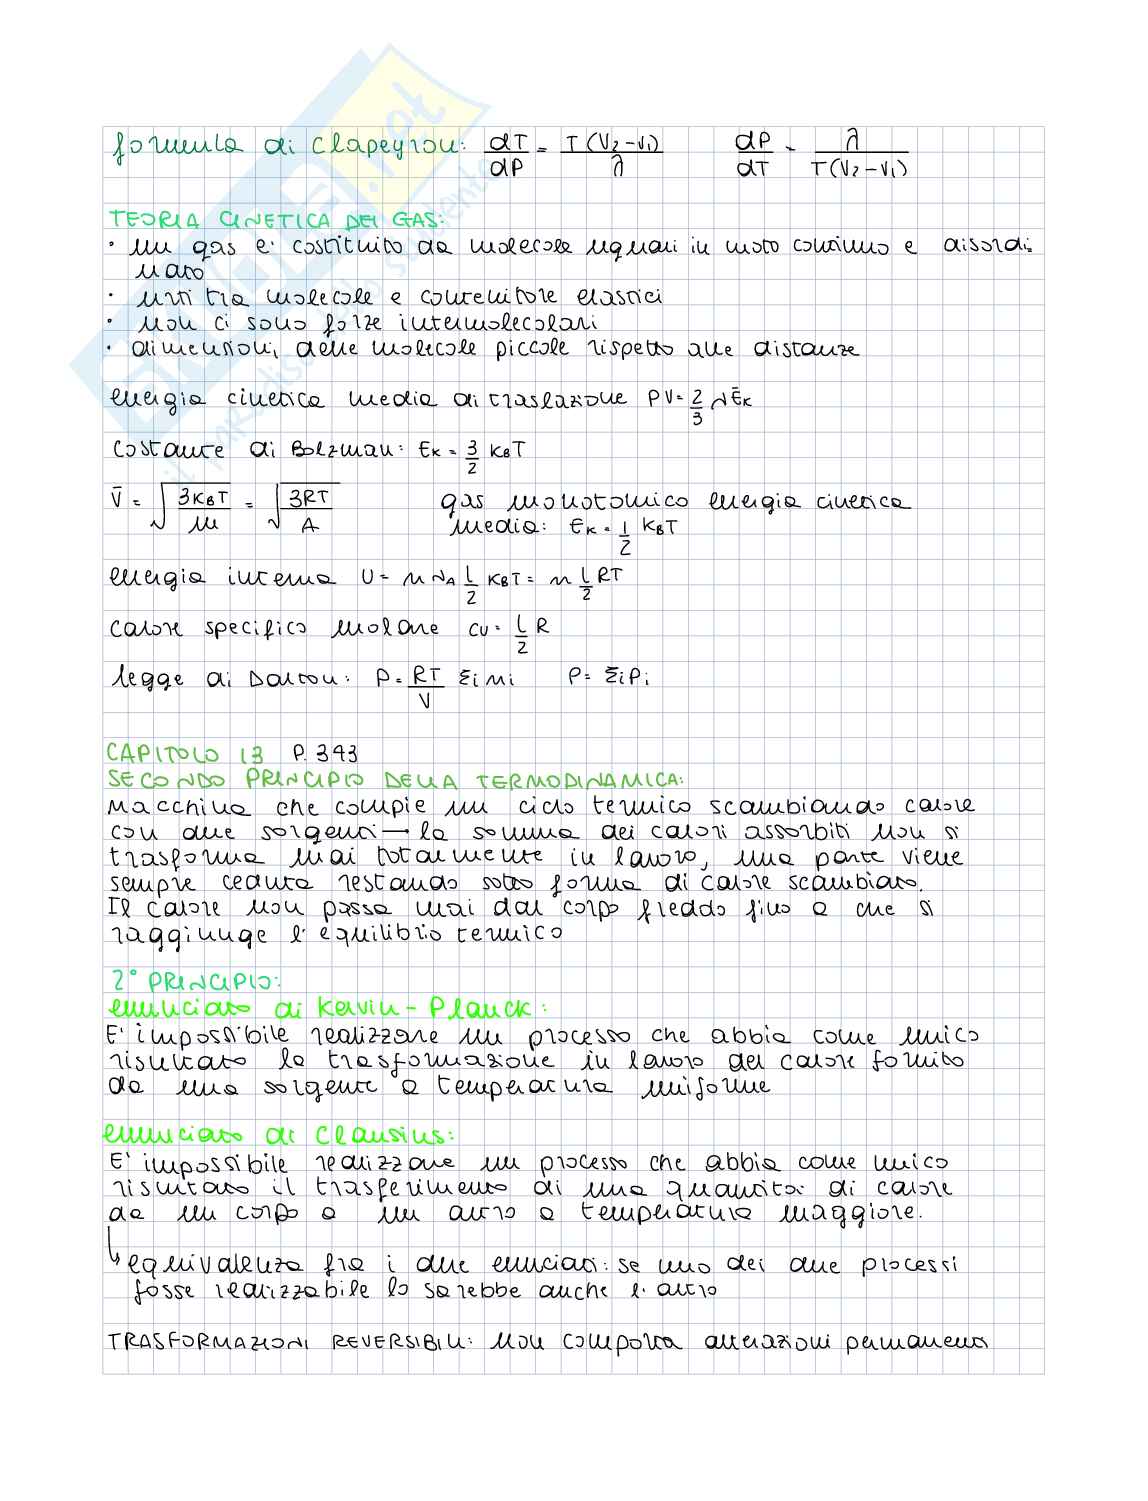 formula di Clapeyron: dT/dP = T(V2-V1)/λ dP/dT = λ/T(V2-V1)
TEORIA CINETICA DEI GAS:
• un gas è costituito da molecole uguali in moto continuo e disordi-
nato
• urti tra molecole e contenitore elastici
• non ci sono forze intermolecolari
• dimensioni delle molecole piccole rispetto alle distanze
energia cinetica media di traslazione PV = 2/3 N Ēk
Costante di Bolzman: Ek = 3/2 KBT
V̄ = √(3KBT/m) = √(3RT/A) gas monotomico energia cinetica
media: Ek = 1/2 KBT
energia interna U = n NA l/2 KBT = n l/2 RT
Calore specifico molare cv = l/2 R
legge di Dalton: P = RT/V Σi ni P = Σi Pi
CAPITOLO 13 P. 343
SECONDO PRINCIPIO DELLA TERMODINAMICA:
Macchina che compie un ciclo termico scambiando calore
con due sorgenti → la somma dei calori assorbiti non si
trasforma mai totalmente in lavoro, una parte viene
sempre ceduta restando sotto forma di calore scambiato.
Il calore non passa mai dal corpo freddo fino a che si
raggiunge l'equilibrio termico
2° PRINCIPIO:
enunciato di Kelvin-Planck:
E' impossibile realizzare un processo che abbia come unico
risultato la trasformazione in lavoro del calore fornito
da una sorgente a temperatura uniforme
enunciato di Clausius:
E' impossibile realizzare un processo che abbia come unico
risultato il trasferimento di una quantità di calore
da un corpo a un altro a temperatura maggiore.
↳ equivalenza fra i due enunciati: se uno dei due processi
fosse realizzabile lo sarebbe anche l'altro
TRASFORMAZIONI REVERSIBILI: Non comporta alterazioni permanenti
SKUOLA.net
il paradiso dello studente